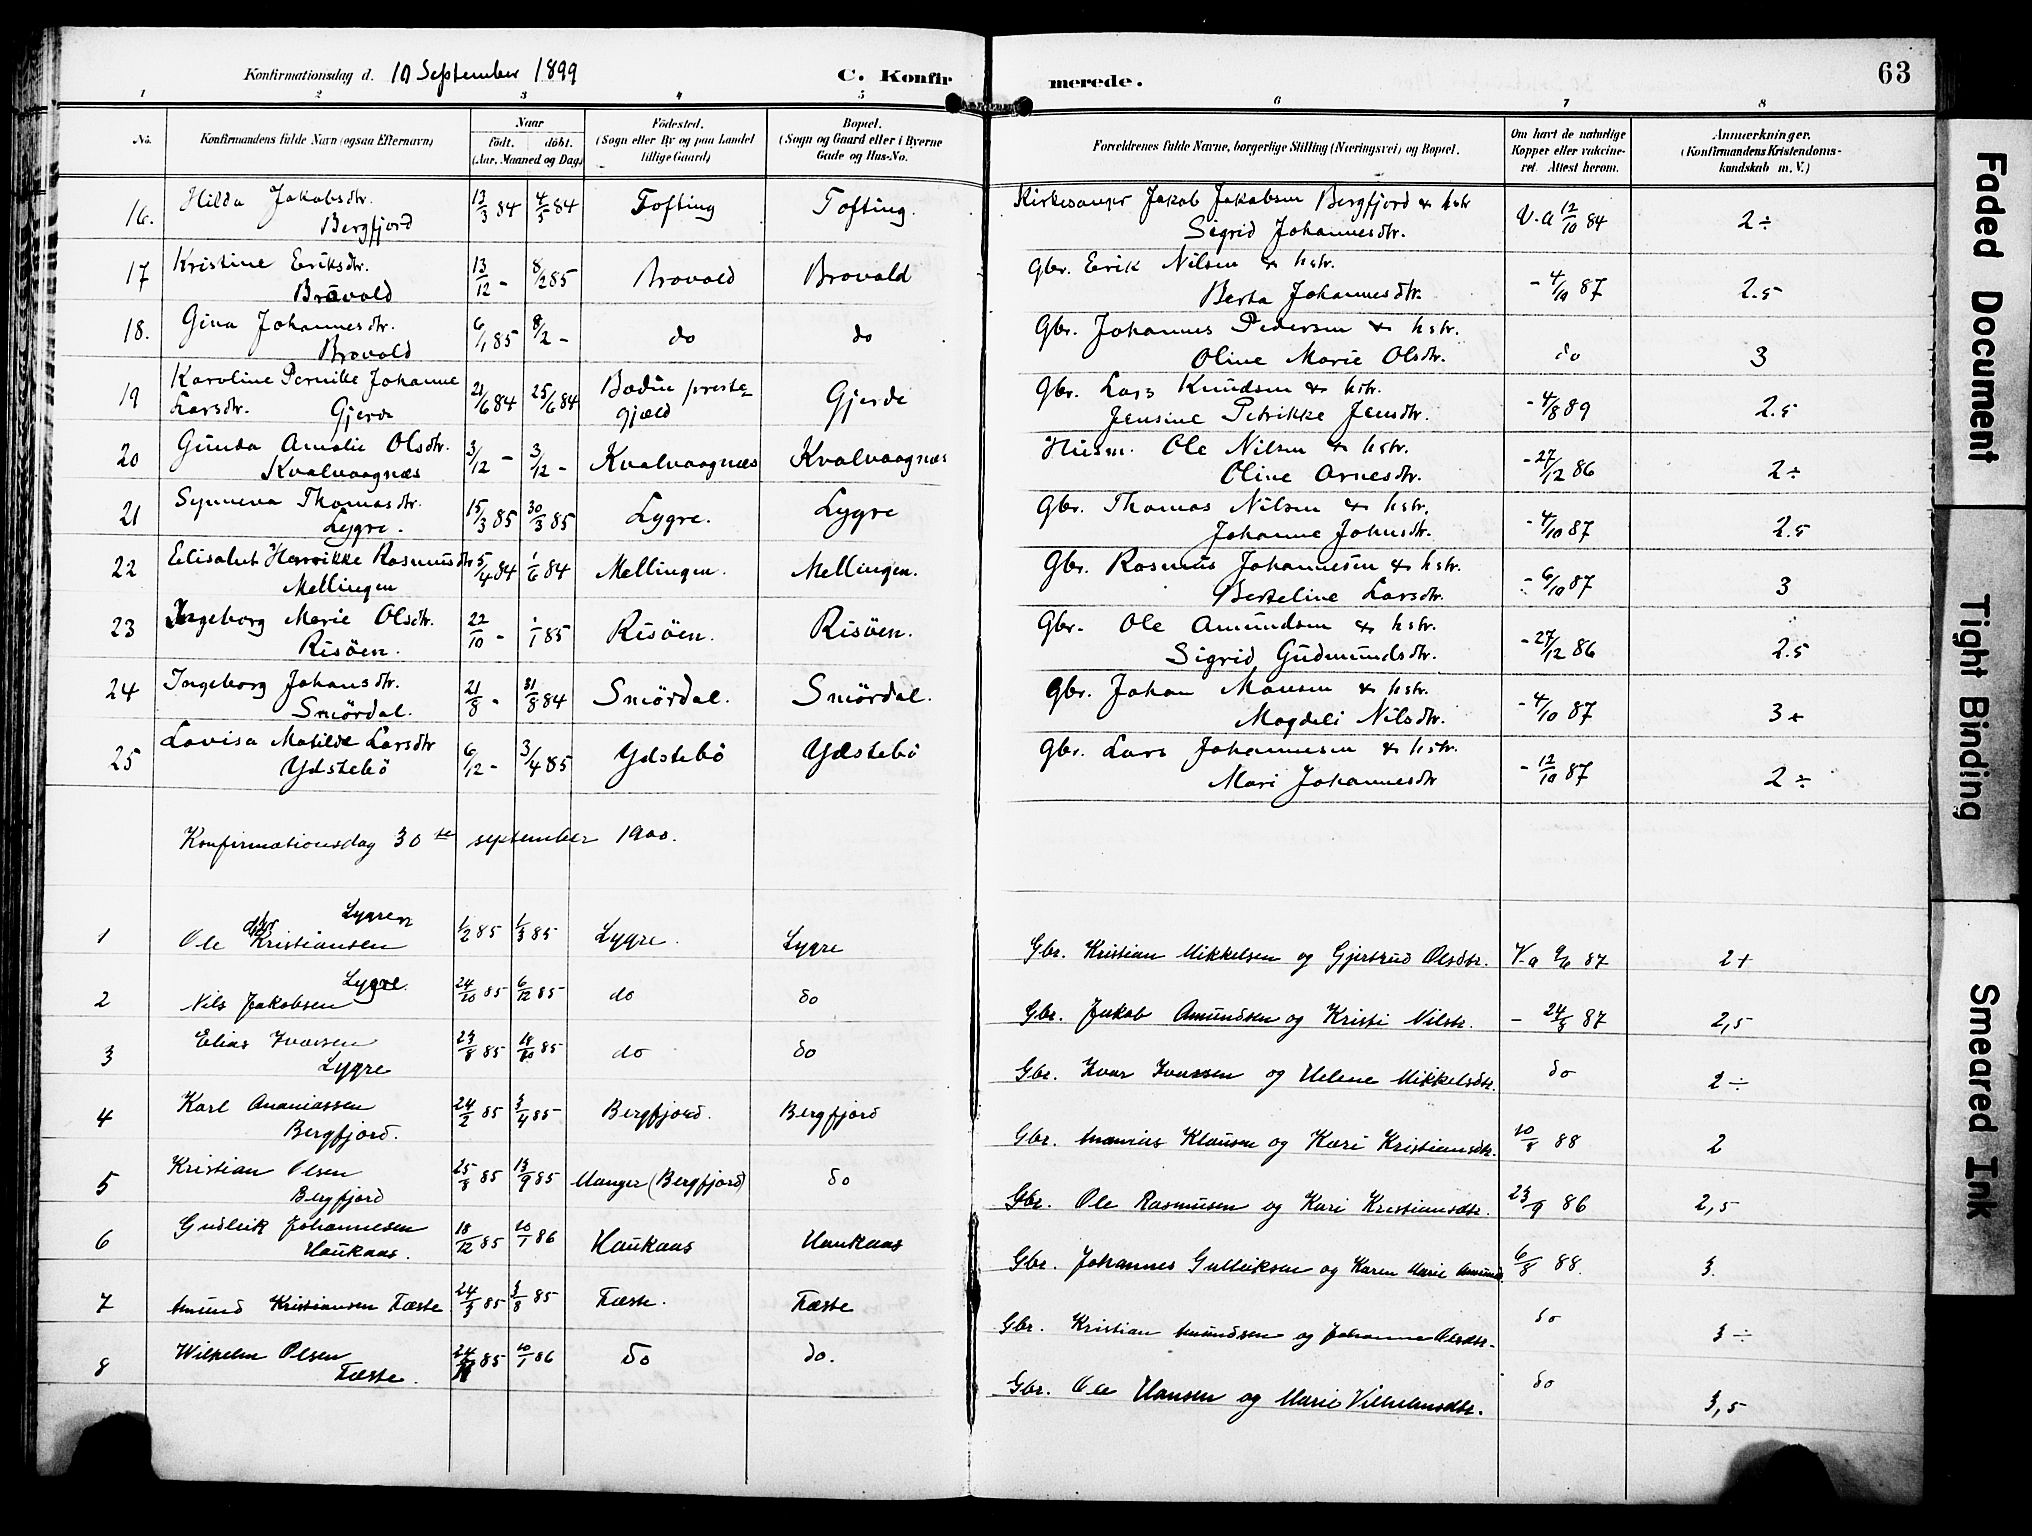 Konfirmationsdag d. 10 September 1899
C. Konfir merede. 63
1 2 3 4 5 6 7 8
No. Konfirmandens fulde Navn (ogsaa Efternavn) Naar født. døbt. (Aar, Maaned og Dag) Fødested. (Sogn eller By og paa Landet tillige Gaard) Bopæl. (Sogn og Gaard eller i Byerne Gade og Hus-No. Forældrenes fulde Navne, borgerlige Stilling (Næringsvei) og Bopæl. Om havt de naturlige Kopper eller vakcineret. Attest herom. Anmærkninger. (Konfirmandens Kristendomskundskab m. V.)
16. Hilda Jakobsdtr. Bergfjord 13/3 84 4/5 84 Tofting Tofting. Kirkesanger Jakob Jakobsen Bergfjord & hstr Sigrid Johannesdtr. V.a 12/10 84 2 ÷
17 Kristine Eriksdtr. Bråvold 13/12 - 8/2 85 Brovold Brovold Gbr. Erik Nilsen & hstr. Berta Johannesdtr. - 4/10 87 2.5
18. Gina Johannesdtr. Brovold 6/1 85 8/2 - do do Gbr. Johannes Pedersen & hstr. Oline Marie Olsdtr. do 3
19 Karoline Pernikke Johanne Larsdtr. Gjerde 21/6 84 25/6 84 Bodin prestegjæld Gjerde Gbr. Lars Knudsen & hstr. Jensine Petrikke Jensdtr. - 4/8 89 2.5
20 Gunda Amalie Olsdtr. Kvalvaagnæs 3/12 - 3/12 - Kvalvaagnæs Kvalvaagnæs Husm. Ole Nilsen & hstr. Oline Arnesdtr. - 27/12 86 2 ÷
21 Synneva Thomasdtr. Lygre. 15/3 85 30/3 85 Lygre. Lygre Gbr. Thomas Nilsen & hstr. Johanne Johnsdtr. - 4/10 87 2.5
22 Elisabet Henrikke Rasmusdtr Mellingen 5/4 84 1/6 84 Mellingen. Mellingen. Gbr. Rasmus Johannesen & hstr. Berteline Larsdtr. - 6/10 87 3
23 Ingeborg Marie Olsdtr. Risöen. 22/10 - 1/1 85 Risöen. Risöen. Gbr. Ole Amundsen & hstr. Sigrid Gudmundsdtr. - 27/12 86 2.5
24 Ingeborg Johansdtr. Smördal. 21/8 - 31/8 84 Smördal. Smördal. Gbr. Johan Monsen & hstr. Magdeli Nilsdtr. - 4/10 87 3 +
25 Lovisa Matilde Larsdtr Ydstebö 6/12 - 3/4 85 Ydstebö Ydstebö Gbr. Lars Johannesen & hstr. Mari Johannesdtr - 12/10 87 2 ÷
Konfirmationsdag 30te september 1900.
1 Ole Kristiansen Lygre 1/2 85 1/3 85 Lygre. Lygre Gbr. Kristian Mikkelsen og Gjertrud Olsdtr. V.a 9/6 87 2 +
2 Nils Jakobsen Lygre. 24/10 85 6/12 85 do do Gbr. Jakob Amundsen og Kristi Nilstr. - 24/8 87 2,5
3 Elias Ivarsen Lygre 23/8 85 18/10 85 do do Gbr. Ivar Ivarssen og Helene Mikkelsdtr. do 2 ÷
4 Karl Ananiassen Bergfjord. 24/2 85 3/4 85 Bergfjord. Bergfjord Gbr. Ananias Klausen og Kari Kristiansdtr. 10/8 88 2
5 Kristian Olsen Bergfjord 25/8 85 13/9 85 Manger (Bergfjord) do Gbr. Ole Rasmusen og Kari Kristiansdtr. 23/9 86 2,5
6 Gudleik Johannesen Haukaas. 18/12 85 10/1 86 Haukaas Haukaas Gbr. Johannes Gulleiksen og Karen Marie Amunds 6/8 88. 3.
7 Amund Kristiansen Fæste 24/3 85 3/8 85 Fæste. Fæste Gbr. Kristian Amundsen og Johanne Olsdtr. do 3 ÷
8 Wilhelm Olsen Fæste. 85 10/1 86 do do. Gbr. Ole Hansen og Marie Vilhelmsdtr. do 3,5
Faded Document
Tight Binding
Smeared Ink